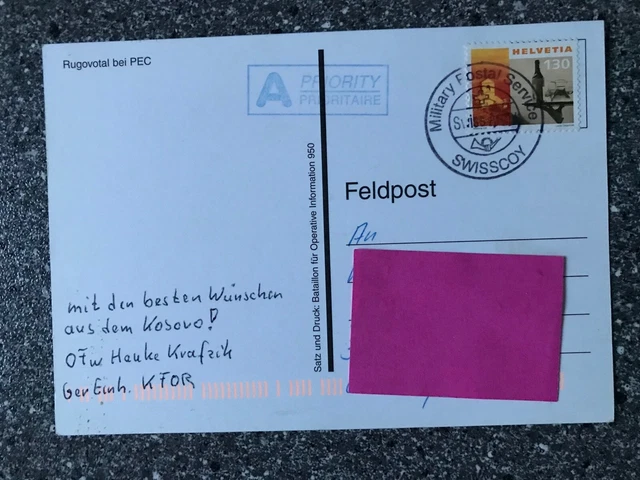 Rugovotal bei PEC
A PRIORITY
PRIORITAIRE
HELVETIA
130
Military Postal Service
SWISSCOY
Satz und Druck: Bataillon für Operative Information 950
Feldpost
An
mit den besten Wünschen
aus dem Kosovo!
OFw Hauke Krafzik
GerEinh. KFOR